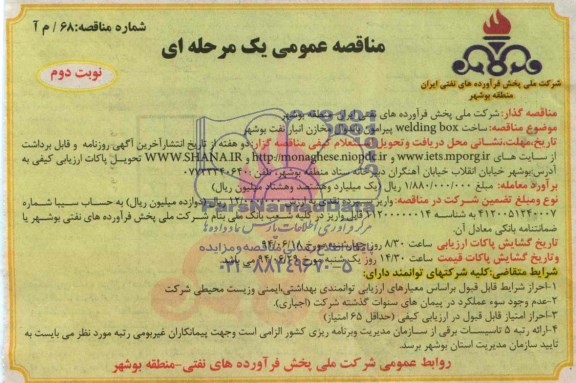 شماره مناقصه:۶۸/ م آ
مناقصه عمومی یک مرحله ای
نوبت دوم
شرکت ملی پخش فرآورده های نفتی ایران
منطقه بوشهر
مناقصه گذار:شرکت ملی پخش فرآورده های نفتی ایران منطقه بوشهر
موضوع مناقصه:ساخت welding box پیرامون مخازن انبار نفت بوشهر
تاریخ،مهلت،نشانی محل دریافت و تحویل استعلام کیفی مناقصه گزار دو هفته از تاریخ انتشارآخرین آگهی روزنامه و قابل برداشت
از سایت های www.iets.mporg.ir و http://monaghese.niopdc.ir و WWW.SHANA.IR تحویل پاکات ارزیابی کیفی به
آدرس:بوشهر خیابان انقلاب خیابان آهنگران دبیرخانه ستاد منطقه بوشهر-تلفن
برآورد معامله: مبلغ ۱/۸۸۰/۰۰۰/۰۰۰ ریال (یک میلیارد وهشتصد وهشتاد میلیون ریال)
نوع ومبلغ تضمین شرکت در مناقصه: واریز ریال (دوازده میلیون ریال) به حساب سیبا شماره
۴۱۲۰۰۵۱۲۴۰۰۷ به شناسه قابل واریز در کلیه شعب بانک ملی بنام شرکت ملی پخش فرآورده های نفتی بوشهر یا
ضمانتنامه بانکی معادل آن.
تاریخ گشایش پاکات ارزیابی ساعت ۸/۳۰ روز چهارشنبه مورخ ۹۴/۰۶/۱۸
وتاریخ گشایش پاکات قیمت ساعت ۱۴/۳۰ روز یک شنبه مورخ ۹۴/۰۶/۲۹ می باشد
شرایط متقاضی:کلیه شرکتهای توانمند دارای:
۱-احراز شرایط قابل قبول براساس معیارهای ارزیابی توانمندی بهداشتی،ایمنی وزیست محیطی شرکت
۲-عدم وجود سوء عملکرد در پیمان های سنوات گذشته شرکت (اجباری).
۳-احراز امتیاز قابل قبول در ارزیابی کیفی (حداقل ۶۵ امتیاز)
۴-ارائه رتبه ۵ تاسیسات برقی از سازمان مدیریت وبرنامه ریزی کشور الزامی است وجهت پیمانکاران غیربومی رتبه مورد نظر می بایست به
تایید سازمان مدیریت استان بوشهر برسد.
روابط عمومی شرکت ملی پخش فرآورده های نفتی-منطقه بوشهر
ParsNamadData
۰۲۱-۸۸۳۴۹۶۷۰-۵